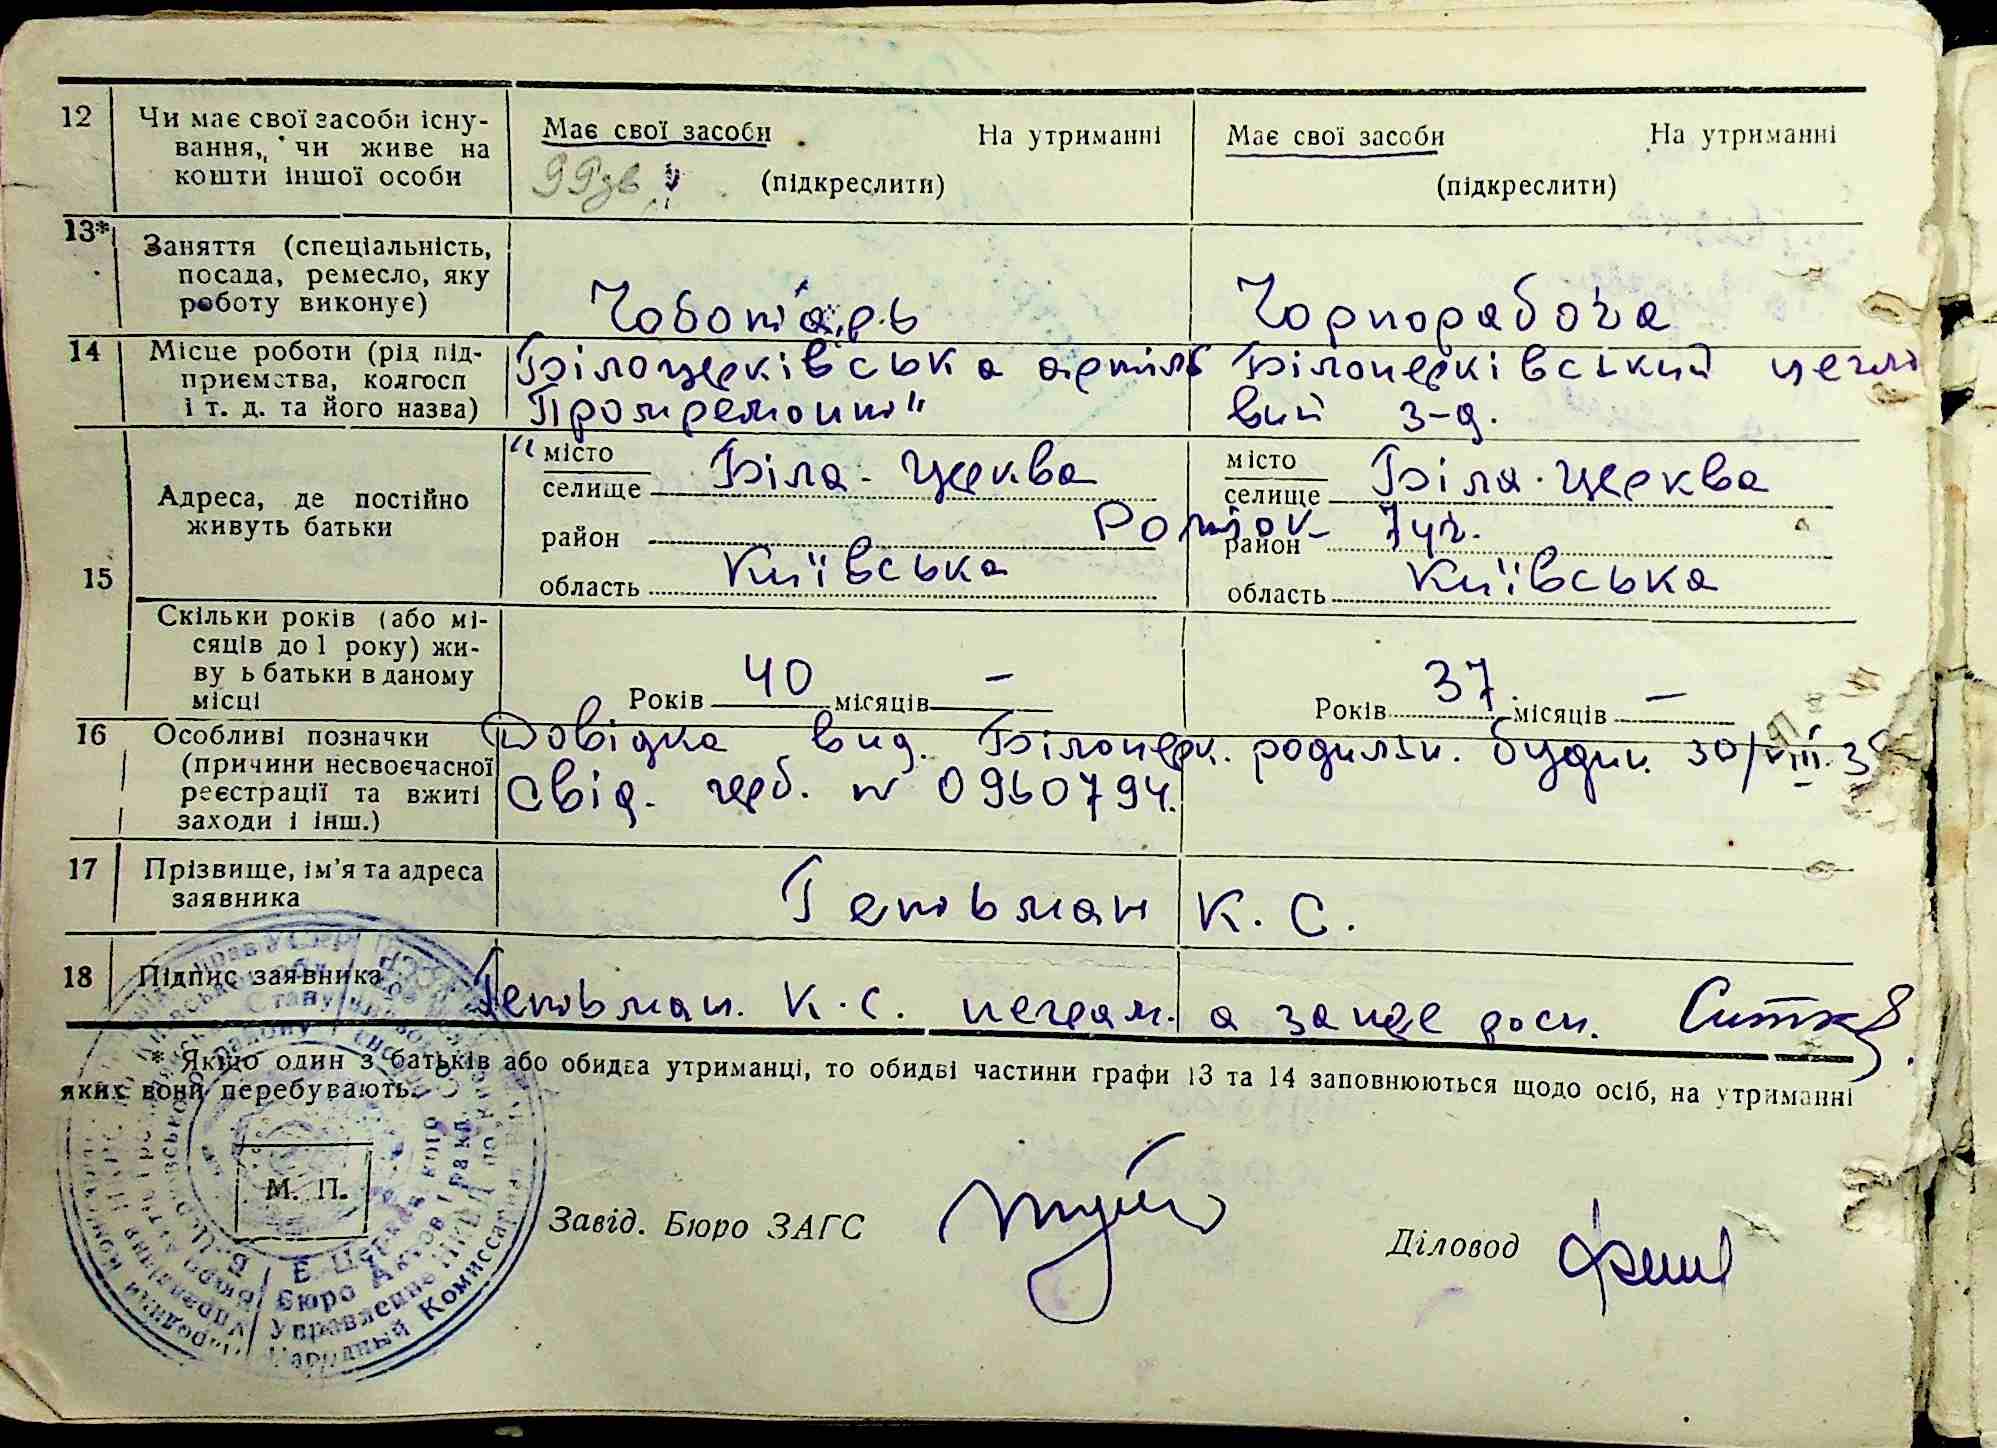 12 Чи має свої засоби існу-
вання, чи живе на
кошти іншої особи
Має свої засоби На утриманні
(підкреслити)
Має свої засоби На утриманні
(підкреслити)
13* Заняття (спеціальність,
посада, ремесло, яку
роботу виконує)
Чоботарь
Чорнорабоча
14 Місце роботи (рід під-
приємства, колгосп
і т. д. та його назва)
Білоцерківська артіль
"Промремонт"
Білоцерківський цеглі
вий з-д.
15 Адреса, де постійно
живуть батьки
місто
селище Біла-Церква
район
область Київська
місто
селище Біла-Церква
Роток- 7 уч.
район
область Київська
Скільки років (або мі-
сяців до 1 року) жи-
ву ь батьки в даному
місці
Років 40 місяців —
Років 37 місяців —
16 Особливі позначки
(причини несвоєчасної
реєстрації та вжиті
заходи і інш.)
Довідка вид. Білоцерк. родильн. будин. 30/VIII. 3
Свід. герб. № 0960794.
17 Прізвище, ім'я та адреса
заявника
Гетьман К. С.
18 Підпис заявника
Гетьман. К. С. неграм. а за неё росп.
* Якщо один з батьків або обидва утриманці, то обидві частини графи 13 та 14 заповнюються щодо осіб, на утриманні
яких вони перебувають.
М. П.
Завід. Бюро ЗАГС
Діловод
Б. Церков кого
Бюро Актов Гражд.
Управление НКВД
Народный Комиссар